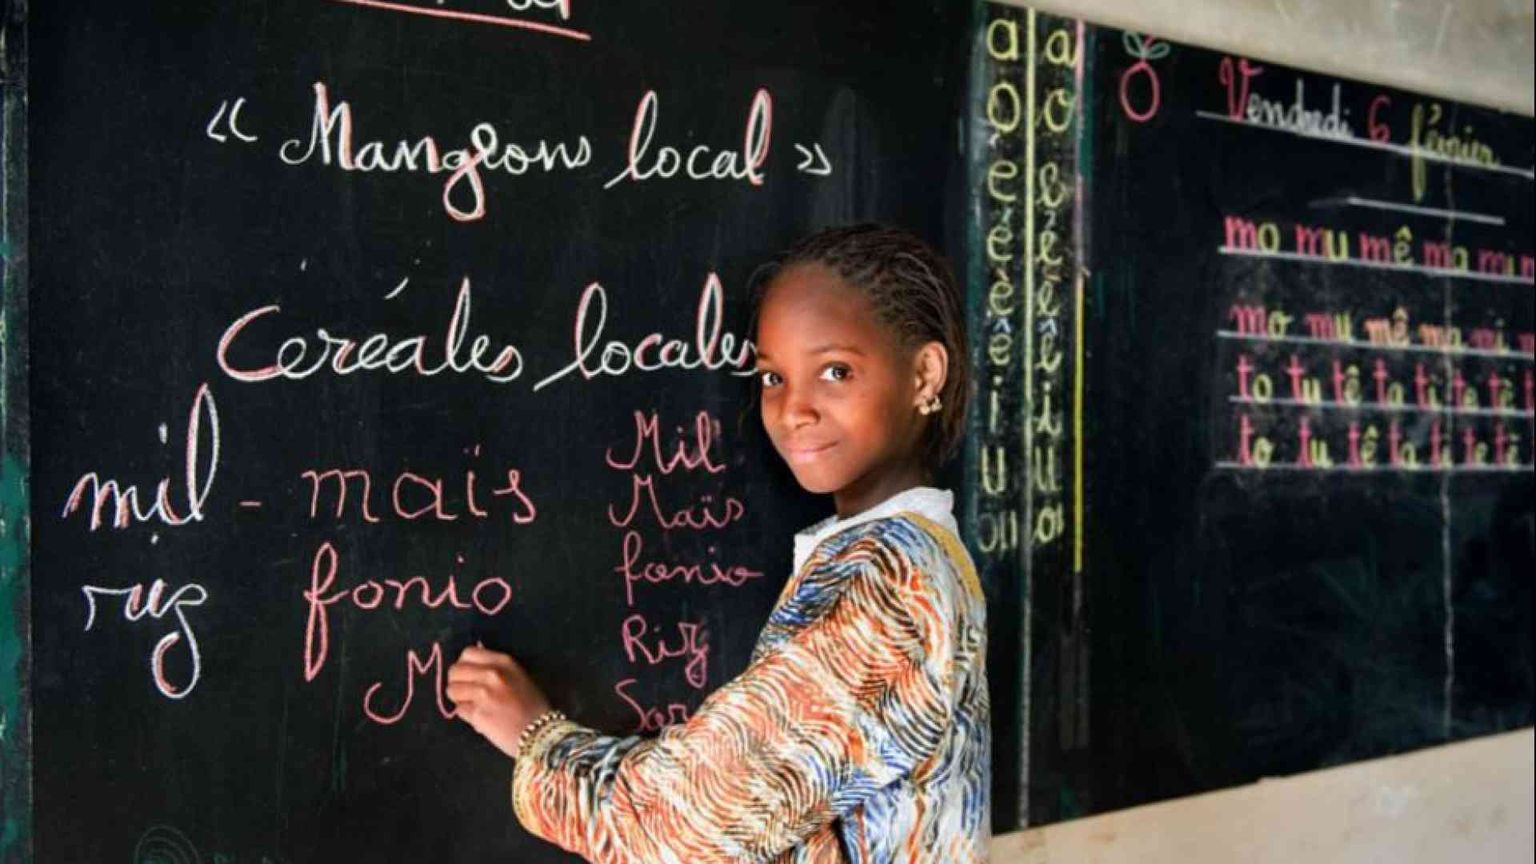 « Mangeons local »
Céréales locales
mil - maïs
riz fonio
M
Mil
Maïs
fonio
Riz
Sor
a a
o o
e e
é é
è è
ê ê
i i
u u
ou
Vendredi 6 février
mo mu mê ma mi
mo mu mê ma mi
to tu tê ta ti te tê
to tu tê ta ti te tê